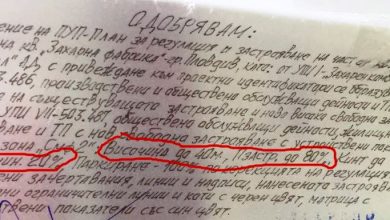 ОДОБРЯВАМ:
ение на ПУП-План за регулация и застрояване на част от
кв. "Захарна фабрика" гр. Пловдив, като: от УПИ I-Захарен
АД, с привеждане към проектни идентификатори се
503.486, производствени и обществено обслужващи дейности и
на съществуващото застрояване и ново високо свободно
УПИ VII-503.481, обществено обслужващи дейности, жилищно
ване и ТП с ново свободно застрояване с устройствени
зона "Смф2" - височина до 40м. Пзастр. до 80%, инт до
мин. 20% Паркиране - 100%
зачертавания, линии и надписи, нанесеното застро
ни ограничителни линии и коти с черен цвят, матрица с
показатели със син цвят.